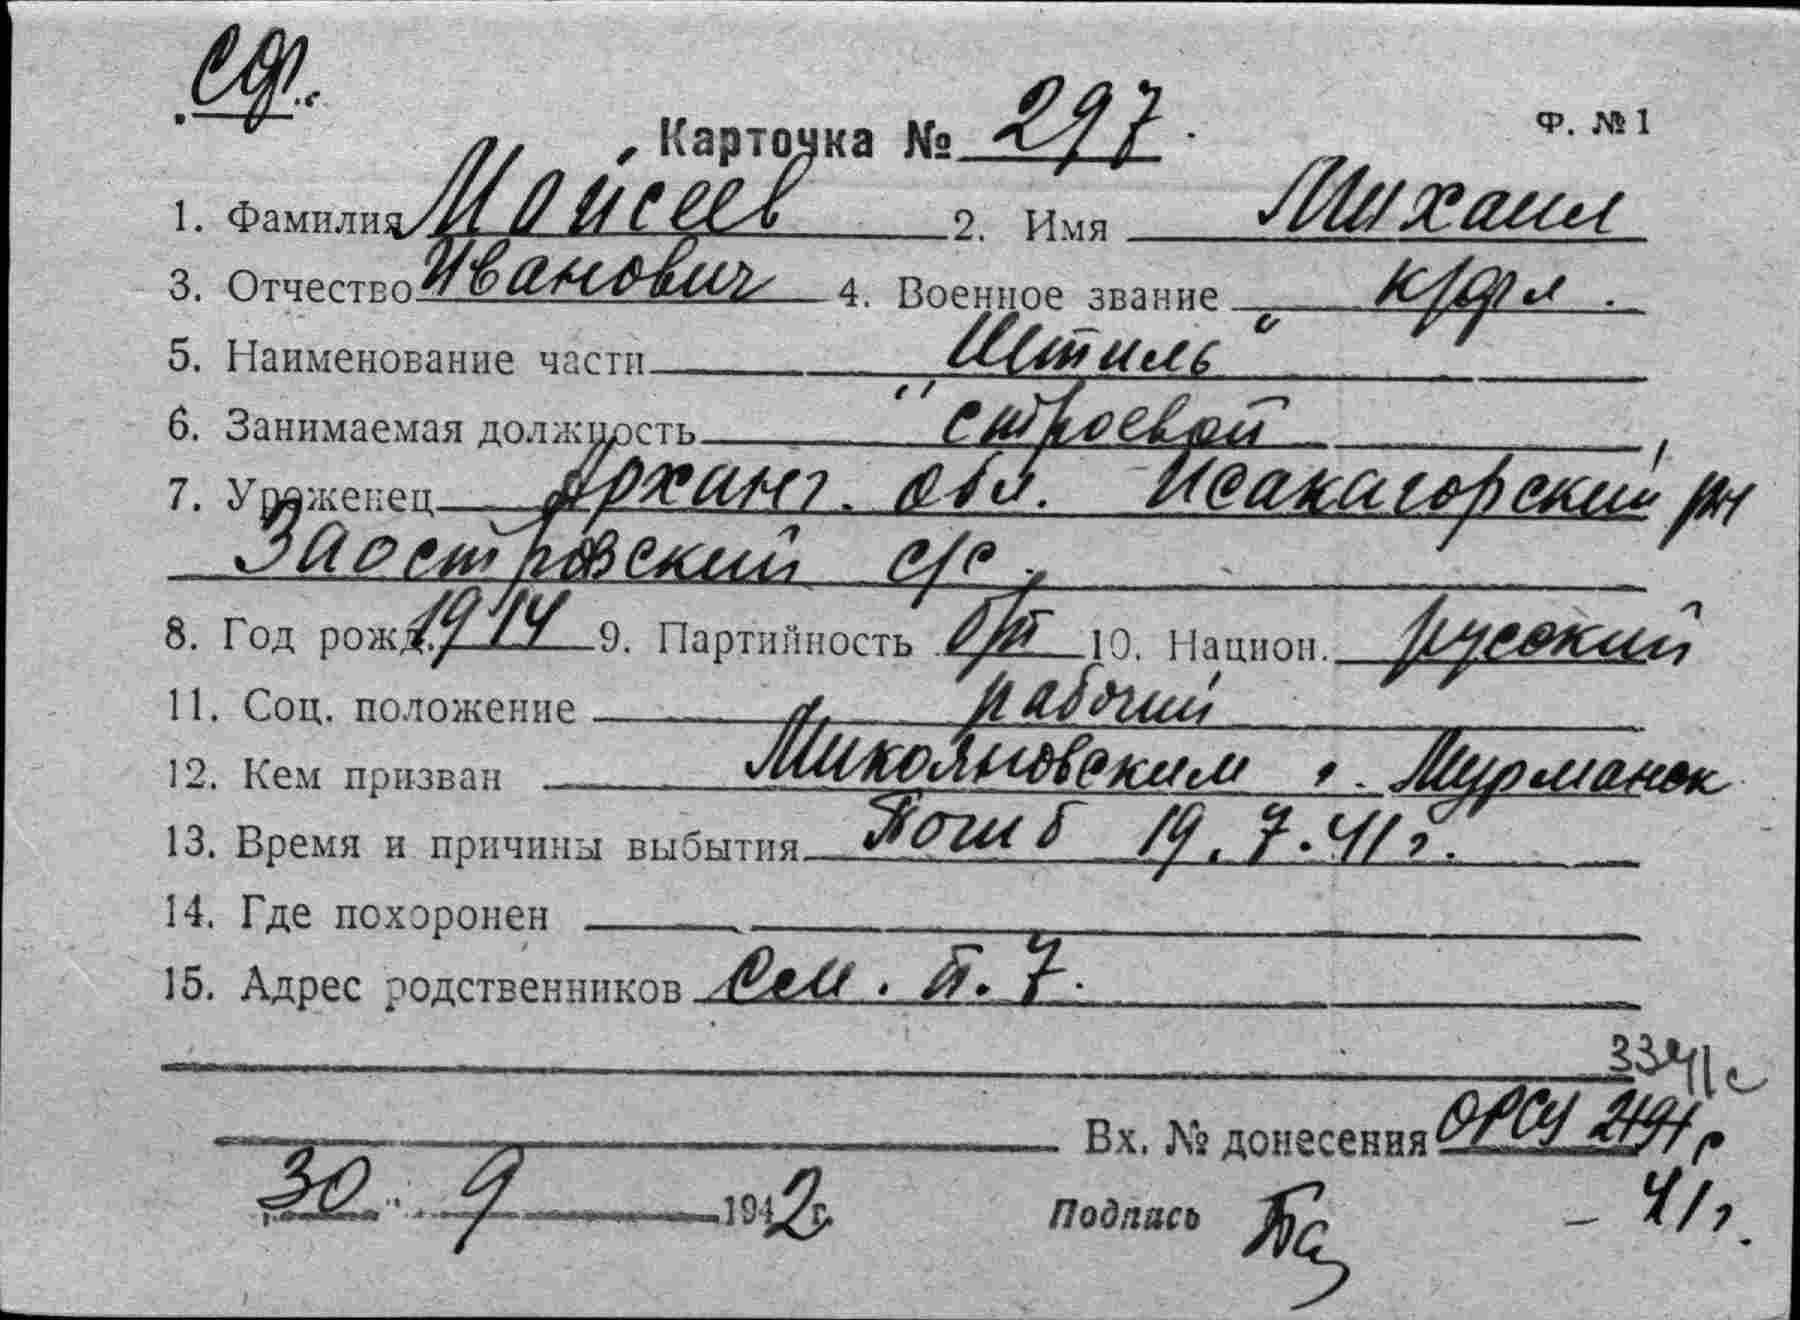 СФ.
Карточка № 297. Ф. № 1
1. Фамилия Моисеев 2. Имя Михаил
3. Отчество Иванович 4. Военное звание к/фл.
5. Наименование части "Штиль"
6. Занимаемая должность строевой
7. Уроженец Арханг. обл. Исакагорский р-н
Заостровский с/с.
8. Год рожд. 1914 9. Партийность б/п 10. Национ. русский
11. Соц. положение рабочий
12. Кем призван Микояновским г. Мурманск
13. Время и причины выбытия Погиб 19.7.41 г.
14. Где похоронен
15. Адрес родственников См. п. 7.
334/с
Вх. № донесения ОРСУ
30 9 1942 г. Подпись - 41 г.